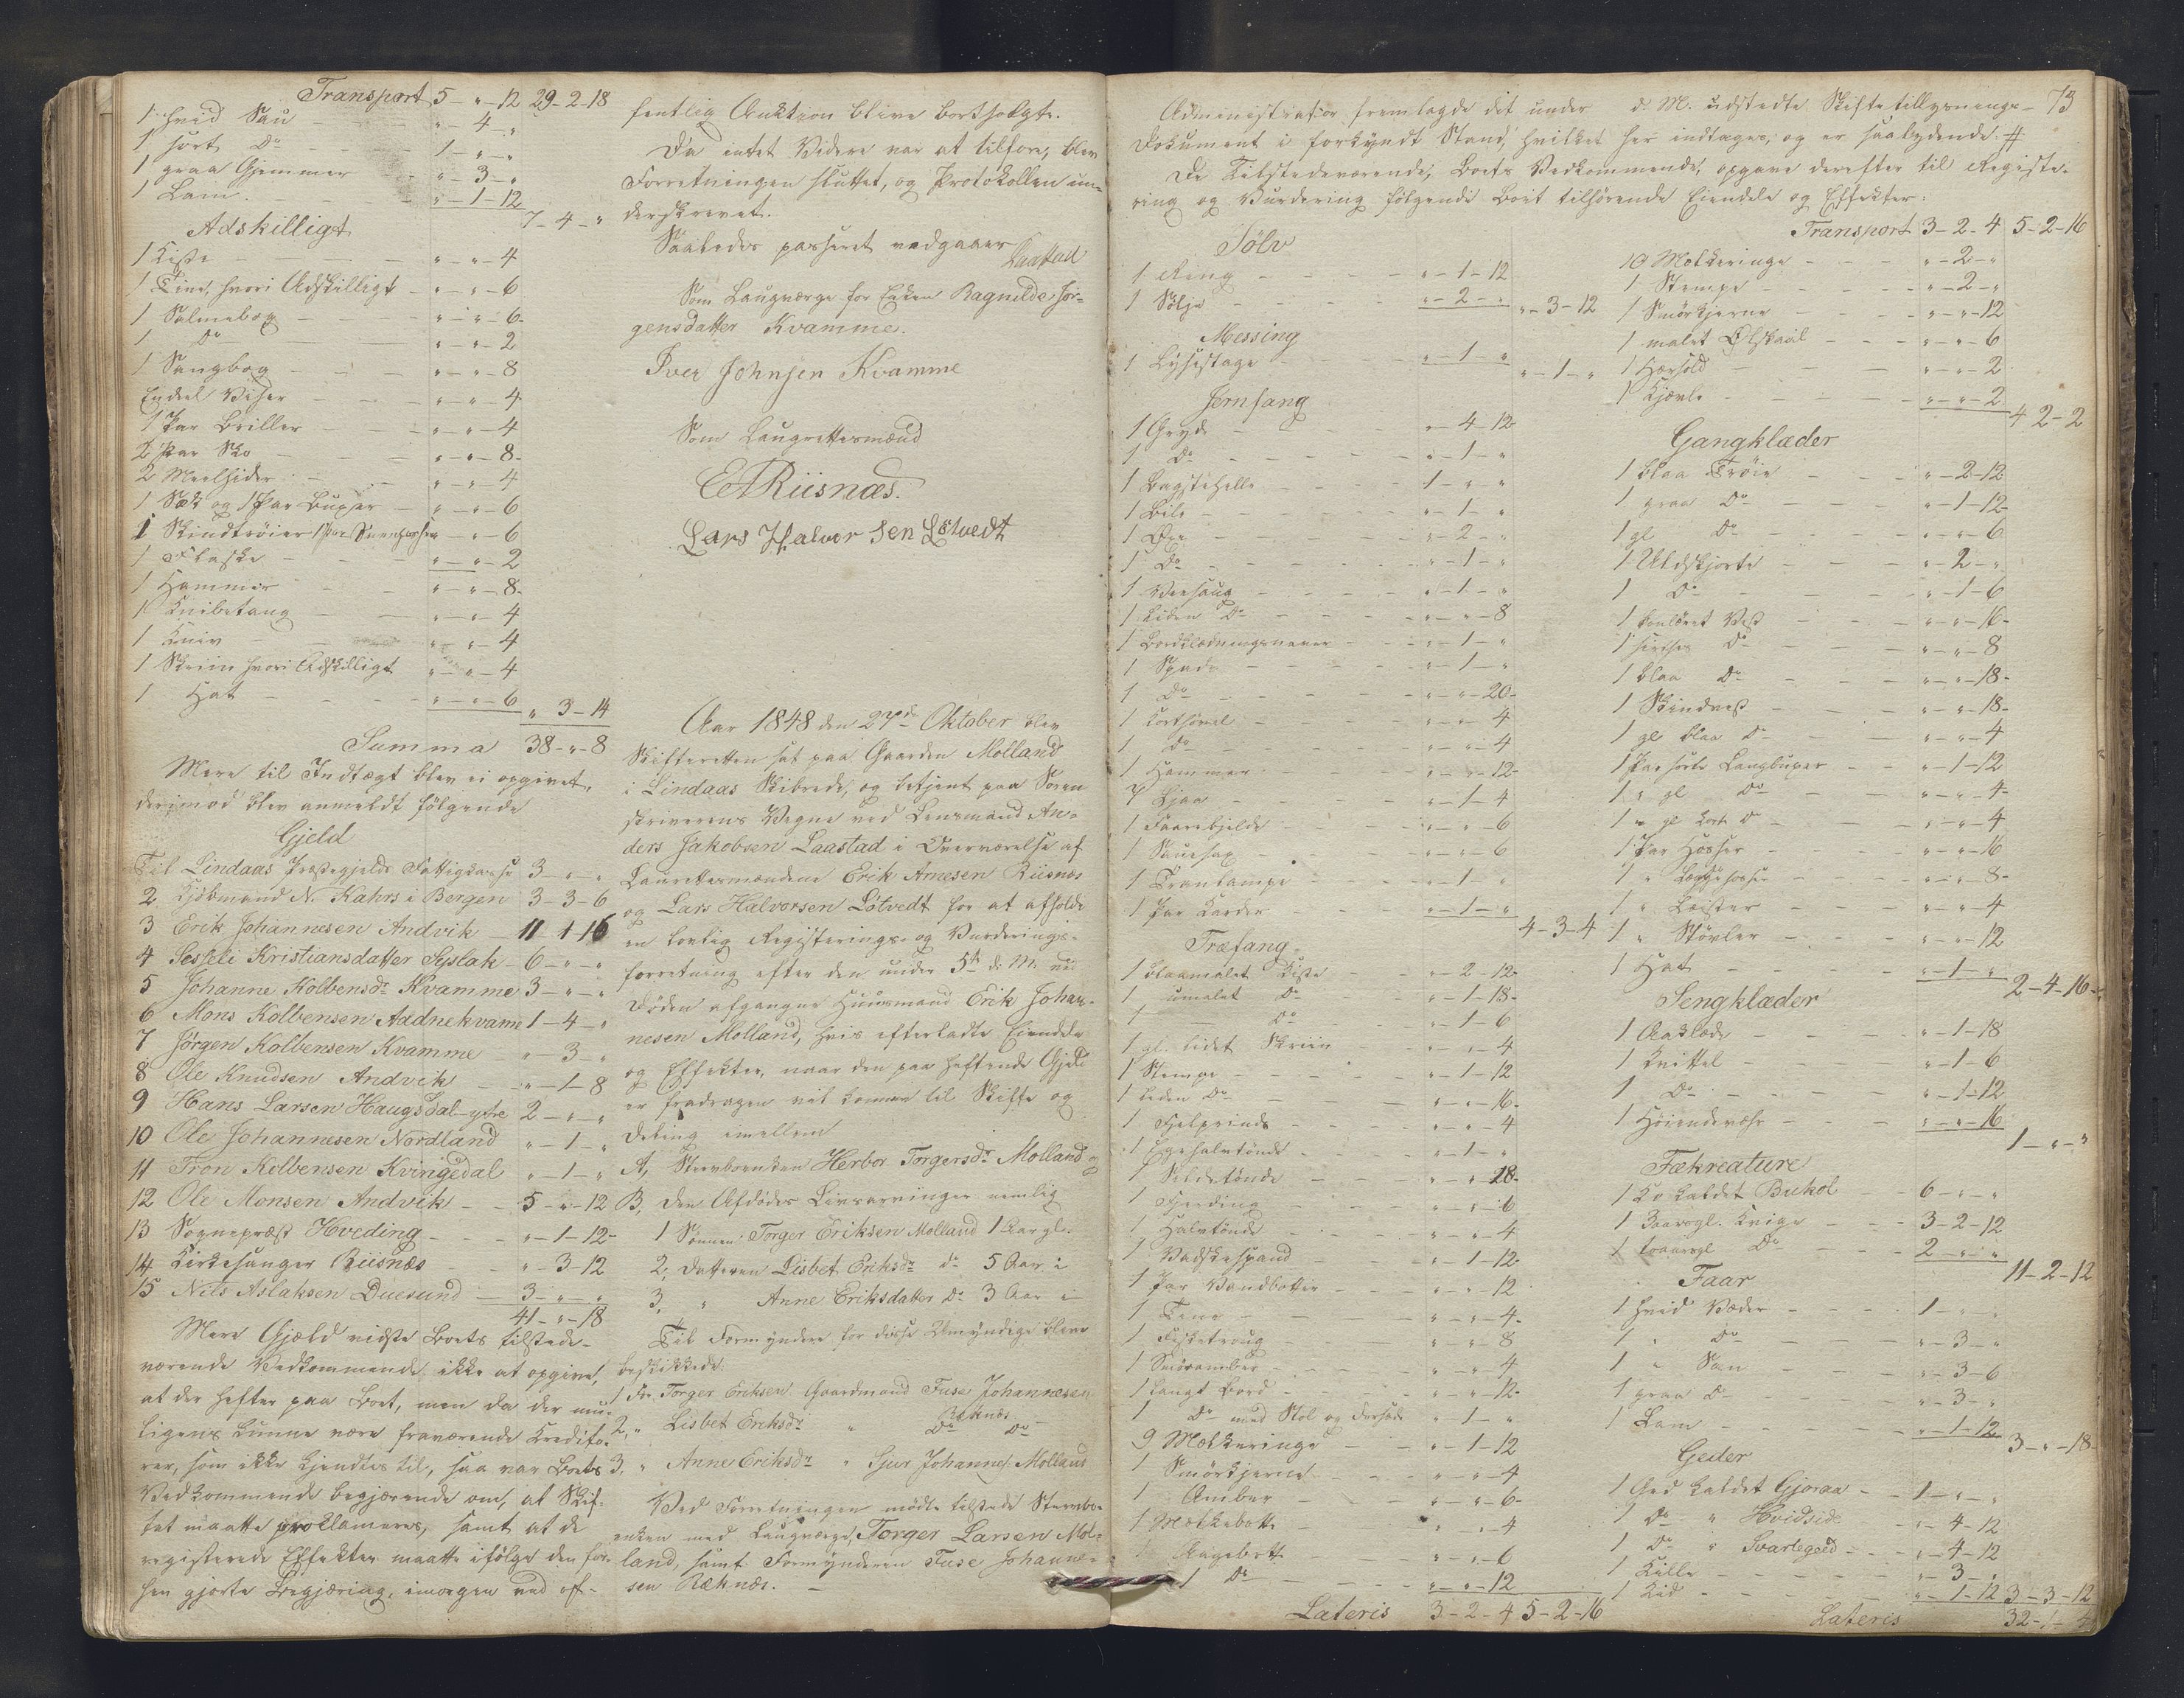 Transport 5 - " - 12 29 - 2 - 18
1 hvid Sau " - 4 - "
1 sort Do 1 - " - "
1 graa Gjimmer " - 3 - "
1 Lam " - 1 - 12
7 - 4 - "
Adskilligt
1 Kiste " - " - 4
1 Tine, hvori Adskilligt " - " - 6
1 Salmebog " - " - 6
1 Do " - " - 2
1 Sangbog " - " - 8
Endeel Viser " - " - 4
1 Par Briller " - " - 4
2 Par Sko " - " - 8
2 Meelsider " - " - 4
1 Sæk og 1 Par Buxer " - " - 6
1 Skindtröier 1 Par " - 6
1 Flaske " - " - 2
1 Hammer " - " - 8
1 Knibetang " - " - 4
1 Kniv " - " - 4
1 Skrin hvori Adskilligt " - " - 4
1 Hat " - " - 6
" 3 - 14
Summa 38 - " - 8
Mere til Indtægt blev ei opgivet,
derimod blev anmeldt følgende
Gjeld
Til Lindaas Præstegjelds Fattigkasse 3 - " - "
2 Kjöbmand N. Kahrs i Bergen 3 - 3 - 6
3 Erik Johannesen Andvik 11 1 16
4 Seseli Kristiansdatter Syslak 6 - " - "
5 Johanne Kolbensdr Kvamme 3 - " - "
6 Mons Kolbensen Aadnekvamme 1 - 4 - "
7 Jörgen Kolbensen Kvamme " - 3 - "
8 Ole Knudsen Andvik " - 1 - 8
9 Hans Larsen Haugsdal ytre 2 - " - "
10 Ole Johannesen Nordland " - 1 - "
11 Tron Kolbensen Kvingedal " - 1 - "
12 Ole Monsen Andvik 5 - " - 12
13 Sognepræst Hveding " - 1 - 12
14 Kirkesanger Riisnæs " - 3 - 12
15 Nils Aslaksen Duesund 3 - " - "
41 - " - 18
Mere Gjæld vidste Boets tilstede-
værende Vedkommende ikke at opgive,
at der hefter paa Boet, men da der mu-
ligens kunne være fraværende Kredito-
rer, som ikke kjendtes til, saa var Boets
Vedkommende begjærende om, at Skif-
tet maatte proklameres, samt at de
registerede Effekter maatte ifölge den for-
hen gjorte Begjæring, imorgen ved of-
fentlig Auktion blive bortsolgte.
Da intet Videre var at tilföre, blev
Forretningen sluttet, og Protokollen un-
derskrevet.
Saaledes passeret vedgaaer
Laastad
Som Laugværge for Enken Ragnilde Jör-
gensdatter Kvamme.
Iver Johnsen Kvamme
Som Laugrettesmænd
EARiisnæs.
Lars Halvor sen Lötvedt
Aar 1848 den 27de Oktober blev
Skifteretten sat paa Gaarden Molland
i Lindaas Skibrede, og betjent paa Soren
skriverens Vegne ved Lensmand An-
ders Jakobsen Laastad i Overværelse af
Laurettesmændene Erik Arnesen Riisnæs
og Lars Halvorsen Lötvedt for at afholde
en lovlig Registerings- og Vurderings-
forretning efter den under 5te d: M. ved
Döden afgangne Huusmand Erik Johan-
nesen Molland, hvis efterladte Eiendele
og Effekter, naar den paa heftende Gjeld
er fradragen vil komme til Skifte og
Deling imellem
A, Stervboenken Herbor Torgersdr Molland og
B, den Afdödes Livsarvinger nemlig
1 Sönnen Torger Eriksen Molland 1 Aar gl.
2, Datteren Lisbet Eriksdr do 5 Aar "
3, " Anne Eriksdatter do 3 Aar "
Til Formyndere for disse Umyndige bleve
beskikkede:
1 For Torger Eriksen Gaardmand Tuse Johannesen
Reknes
2, " Lisbet Eriksdr " Do Do
3, " Anne Eriksdr " Sjur Johannes Molland
Ved Forretningen mödte tilstede Stervbo-
enken med Laugværge, Torger Larsen Mol-
land, samt Formynderen Tuse Johanne-
sen Reknæs.
73
Administrator fremlagde det under d. M. udstedte Skiftetillysnings-
Dokument i forkyndt Stand, hvilket her indtages, og er saalydende: #
De Tilstedeværende, Boets Vedkommende, opgave derefter til Registe-
ring og Vurdering fölgende Boet tilhörende Eiendele og Effekter:
Sölv
1 Ring " - 1 - 12
1 Sölje " - 2 - "
" - 3 - 12
Messing
1 Lysestage " - 1 - "
" - 1 - "
Jernfang
1 Gryde " - 4 - 12
1 Do " - 1 - "
1 Bagstehelle 1 - " - "
1 Bile " - 1 - "
1 Öxe " - 2 - "
1 Do " - 1 - "
1 Veesaug " - 1 - "
1 Liden Do " - " - 8
1 Bordklædningsnaver " - 1 - "
1 Spade " - 1 - "
1 Do " - " - 20
1 Korthövel " - " - 4
1 Do " - " - 4
1 Hammer " - " - 12
7 Ljaa " - 1 - 4
1 Faarebjelde " - " - 6
1 Sauesax " - " - 6
1 Tranlampe " - 1 - "
1 Par Karder " - 1 - "
4 - 3 - 4
Træfang
1 blaamalet Kiste " - 2 - 12
1 umalet Do " - 1 - 18
1 Do " - 1 - 6
1 gl. lidet Skriin " - " - 4
1 Stempe " - 1 - 12
1 Liden Do " - " - 16
1 Fjelprinds " - " - 4
1 Egehalvtönde " - 1 - "
1 Sildetönde " - " - 18
1 Fjerding " - " - 6
1 Halvtönde " - " - 4
1 Vadskespand " - 1 - 12
1 Par Vandbötter " - " - 12
1 Tine " - " - 4
1 Fisketroug " - " - 8
1 Smörambar " - " - 4
1 Langt Bord " - " - 12
1 Do med Stol og Forsæde " - 1 - "
9 Mælkeringe " - 1 - 12
1 Smörkjerne " - " - 4
1 Ambar " - " - 6
1 Mælkebötte " - " - 4
1 Augebött " - " - 6
1 Do " - " - 12
Lateris 3 - 2 - 4 5 - 2 - 16
Transport 3 - 2 - 4 5 - 2 - 16
10 Mælkeringe " - 2 - "
1 Stempe " - 2 - "
1 Smörkjerne " - " - 12
1 malet Ölskaal " - " - 6
1 Hærsold " - " - 2
1 Kjævle " - " - 2
4 2 - 2
Gangklæder
1 blaa Tröie " - 2 - 12
1 graa Do " - 1 - 12
1 gl Do " - " - 6
1 Uldskjorte " - 2 - "
1 Do " - 1 - 6
1 Vest " - " - 16
1 Do " - " - 8
1 blaa Do " - " - 18
1 Skindvest " - " - 18
1 gl blaa Do " - " - 4
1 Par sorte Langbuxer " - 1 - 12
1 " gl Do " - " - 4
1 " gl kort Do " - " - 4
1 Par Hoser " - " - 16
1 " Læggehoser " - " - 8
1 " Leister " - " - 4
1 " Stövler " - " - 12
1 Hat " - 1 - "
2 - 4 - 16
Sengklæder
1 Aaklæde " - 1 - 18
1 Kvittel " - 1 - 6
1 Do " - 1 - 12
1 Höiendevær " - " - 16
1 - " - "
Fækreature
1 Ko kaldet Bukol 6 - " - "
1 3aarsgl. Kvige 3 - 2 - 12
1 toaarsgl Do 2 - " - "
11 - 2 - 12
Faar
1 hvid Væder 1 - " - "
1 " Do " - 3 - "
1 " Sau " - 3 - 6
1 graa Do " - 3 - "
1 Lam " - 1 - 12
3 - " - 18
Geder
1 Ged kaldet Gjoraa 1 - " - "
1 Do " Hvidside " - 4 - 12
1 Do " Svarlegeed " - 4 - 12
1 Kille " - 3 - "
1 Kid " - 1 - 12 3 - 3 - 12
Lateris 32 - 1 - 4